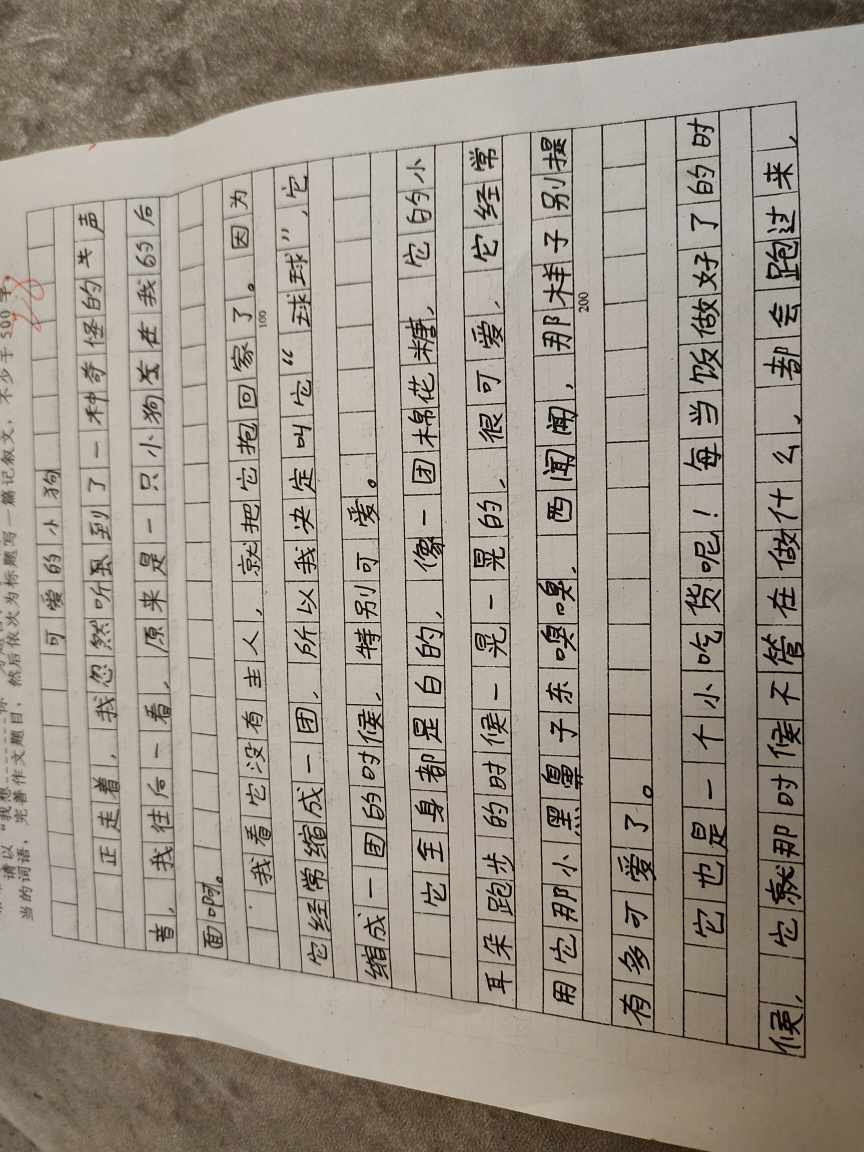 请以“我想
当的词语，完善作文题目，然后依次为标题写一篇记叙文，不少于500字。
28
可爱的小狗
正走着，我忽然听到了一种奇怪的声
音，我往后一看，原来是一只小狗在我的后
面啊。
我看它没有主人，就把它抱回家了。因为
100
它经常缩成一团，所以我决定叫它“球球”，它
缩成一团的时候，特别可爱。
它全身都是白的，像一团棉花糖，它的小
耳朵跑步的时候一晃一晃的，很可爱，它经常
用它那小黑鼻子东嗅嗅，西闻闻，那样子别提
200
有多可爱了。
它也是一个小吃货呢！每当饭做好了的时
候，它就那时候不管在做什么，都会跑过来，